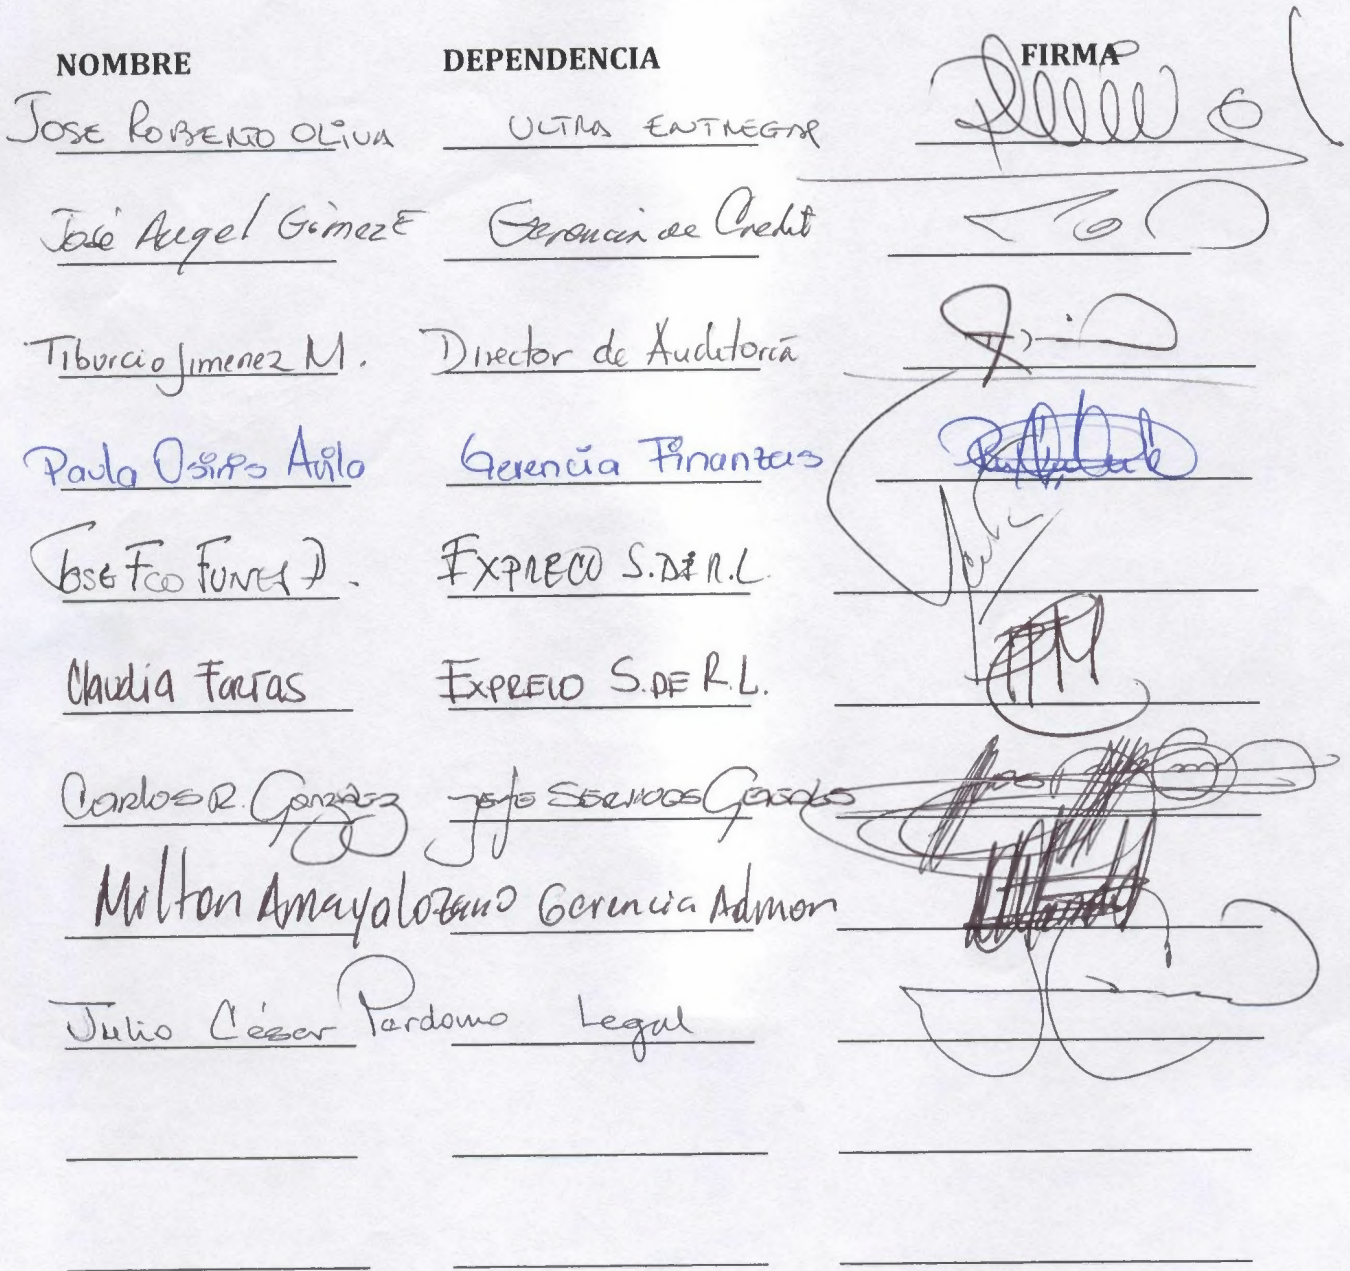 NOMBRE DEPENDENCIA FIRMA
JOSE ROBERTO OLIVA ULTRA ENTREGAR
José Angel Gómez E Gerencia de Credit
Tiburcio Jimenez M. Director de Auditoría
Paula Osiris Avila Gerencia Finanzas
JOSE Fco FUNES D. EXPRECO S. DE R.L.
Claudia Farias EXPRECO S. DE R.L.
Carlos R. González Jefe Servicios
Milton Amaya Lozano Gerencia Admon
Julio César Perdomo Legal